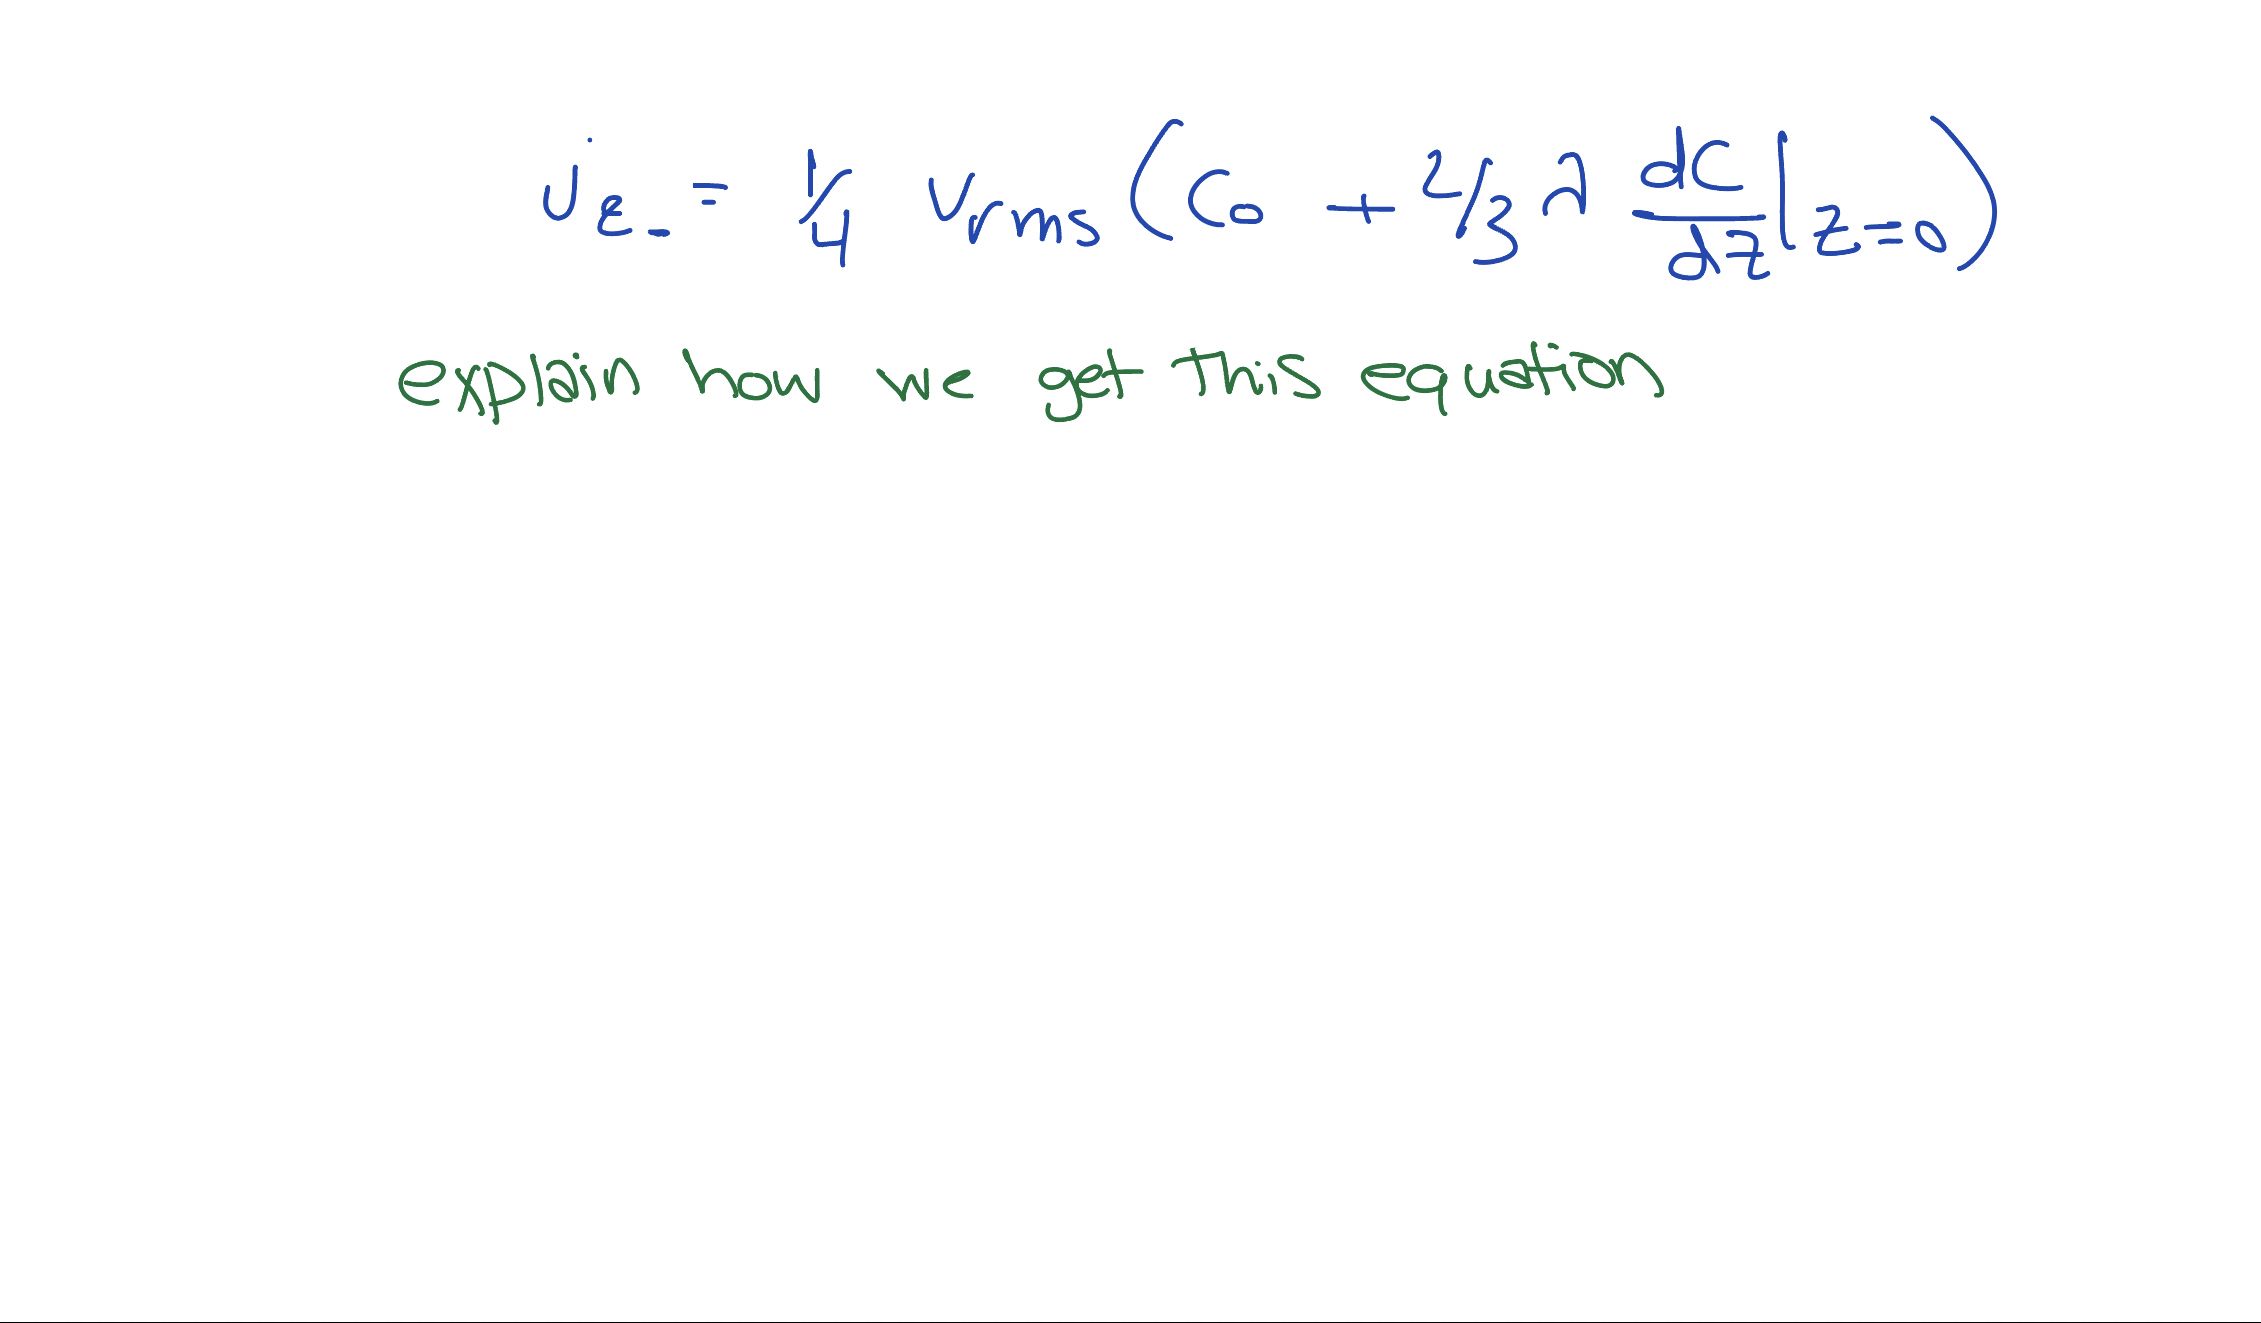 j_{z-} = 1/4 v_{rms} (C_0 + 2/3 λ dC/dz |_{z=0})
explain how we get this equation